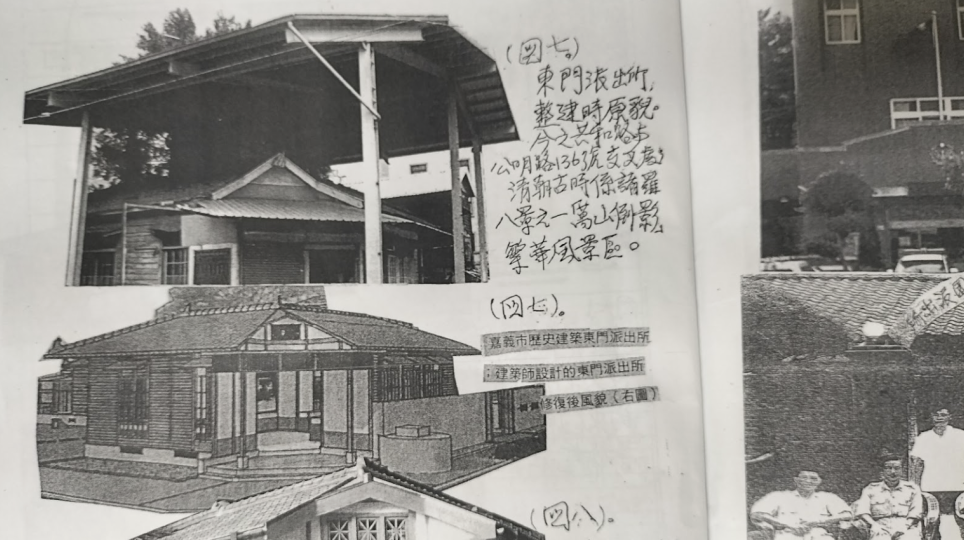 (圖七)
東門派出所,
整建時原貌。
今之共和路与
公明路136號交叉處;
清朝古時係諸羅
八景之一萬山倒影,
警華風景區。
(図七)。
嘉義市歷史建築東門派出所
:建築師設計的東門派出所
修復後風貌(右圖)
(図八)。